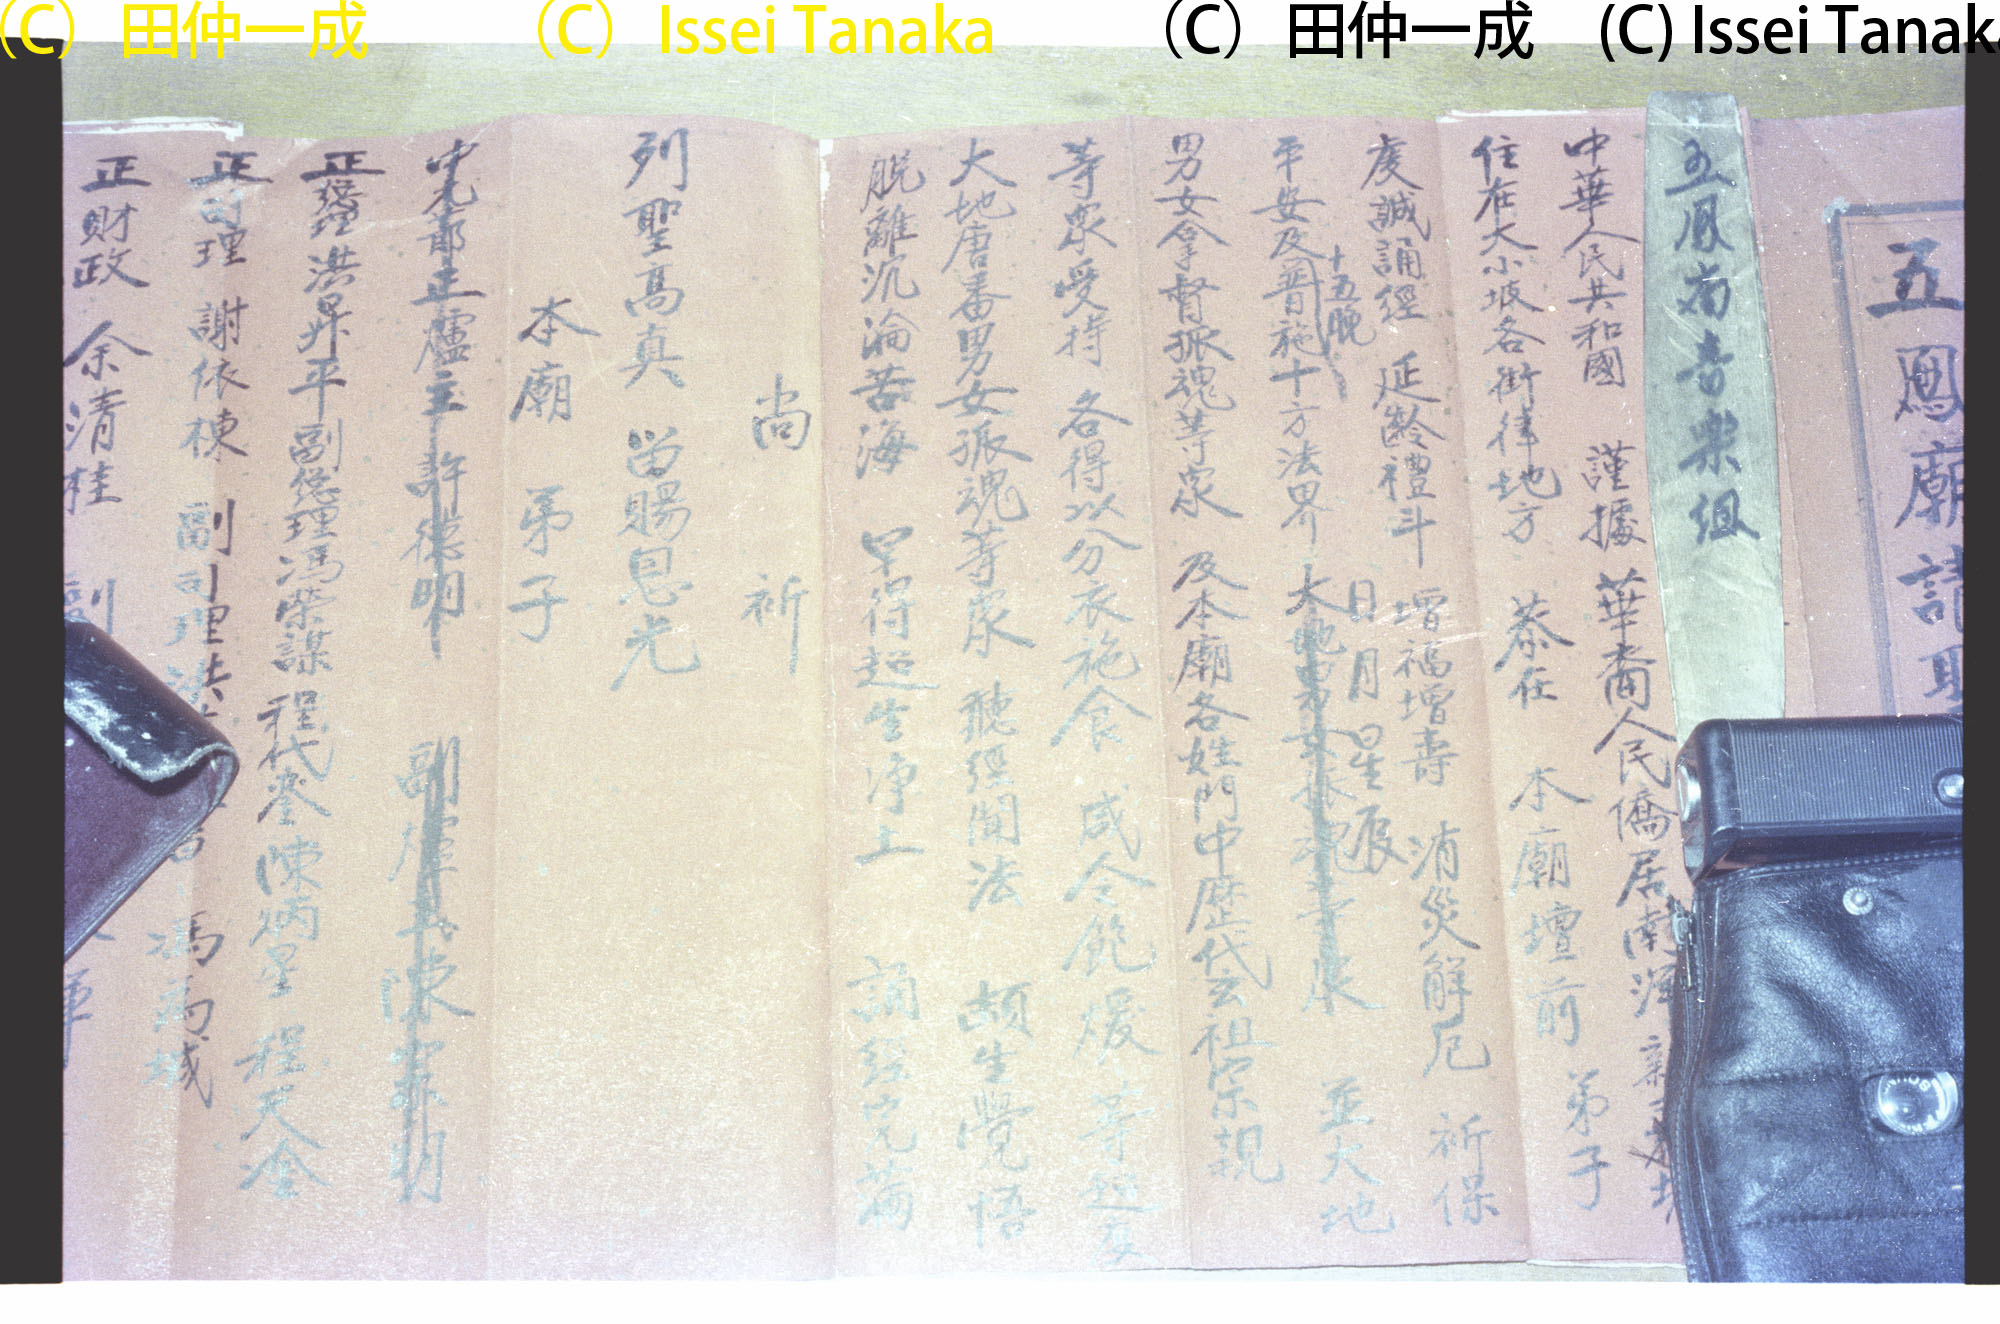 (C) 田仲一成 (C) Issei Tanaka (C) 田仲一成 (C) Issei Tanaka
五鳳廟請聖
五鳳南音樂組
中華人民共和國 謹據 華裔人民僑居南洋
住在大小坡各街律地方 恭在 本廟壇前 弟子
虔誠誦經 延齡禮斗 增福增壽 消災解厄 祈保
十五晚 日月星辰
平安及普施十方法界 大地男女孤魂等眾 並大地
男女拿督孤魂等眾 及本廟各姓門中歷代玄祖宗親
等眾受持 各得以分衣施食 咸令飽煖 等超度
大地唐番男女孤魂等眾 聽經聞法 頓生覺悟
脫離沉淪苦海 早得超生淨土 誦經完滿
尚 祈
列聖高真 留賜恩光
本廟 弟子
中元爺正爐主 許德明 副爐主陳
正總理洪昇平 副總理馮榮謀 程代奎 陳炳星 程天金
正司理 謝依棟 副司理洪 馮禹城
正財政 余清桂 副